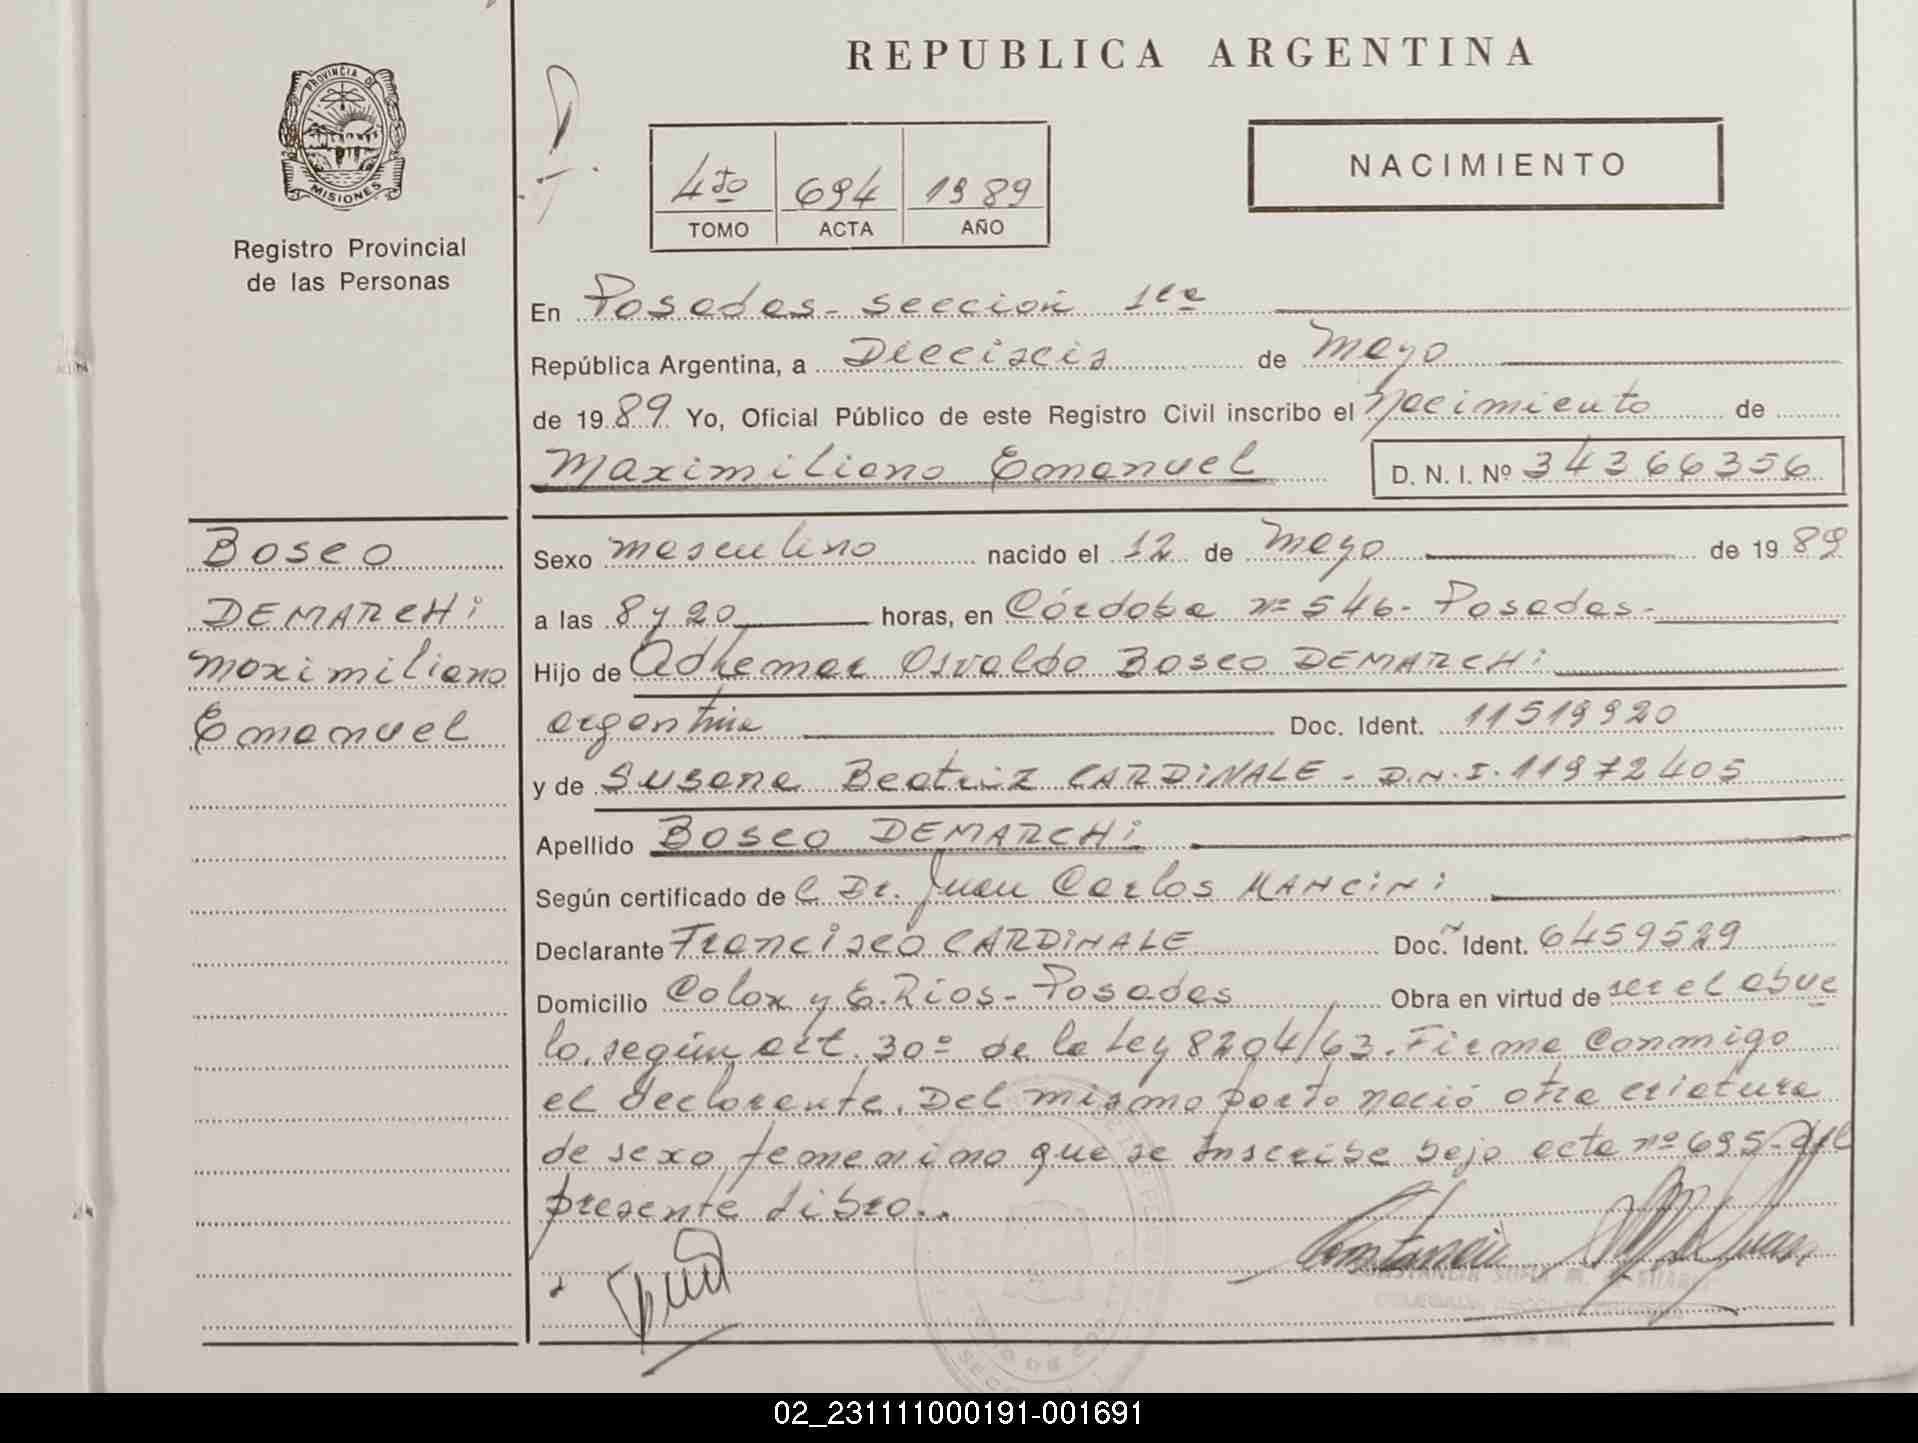 REPUBLICA ARGENTINA
PROVINCIA DE
MISIONES
Registro Provincial
de las Personas
4to 694 1989
TOMO ACTA AÑO
NACIMIENTO
En Posadas - sección 1ra
República Argentina, a Dieciseis de Mayo
de 1989 Yo, Oficial Público de este Registro Civil inscribo el Nacimiento de
Maximiliano Emanuel D. N. I. Nº 34366356
Bosco
DEMARCHi
Maximiliano
Emanuel
Sexo masculino nacido el 12 de Mayo de 1989
a las 8 y 20 horas, en Córdoba nº 546 - Posadas -
Hijo de Adhemar Osvaldo Bosco DEMARCHi
argentina Doc. Ident. 11519920
y de Susana Beatriz CARDiNALE - D.N.I. 11972405
Apellido Bosco DEMARCHi
Según certificado de l Dr. Juan Carlos MANCiNi
Declarante Francisco CARDiNALE Doc. Ident. 6459529
Domicilio Colon y E. Rios - Posadas Obra en virtud de ser el abue
lo, según art. 30º de la Ley 8204/63. Firma Conmigo
el declarante. Del mismo parto nació otra criatura
de sexo femenino que se Inscribe bajo acta nº 695 - del
presente libro..
02_231111000191-001691